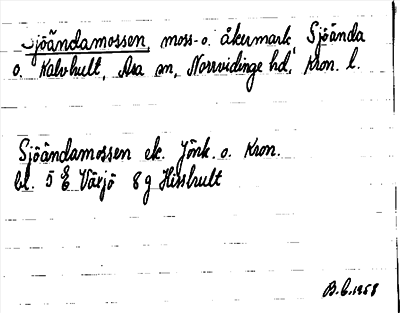 Sjöändamossen, moss- o. åkermark Sjöända
o. Kalvhult, Asa sn, Norrvidinge hd, Kron. l.
Sjöändamossen ek. Jönk. o. Kron.
bl. 5 E Växjö 8 g Hisshult
B.C. 1958